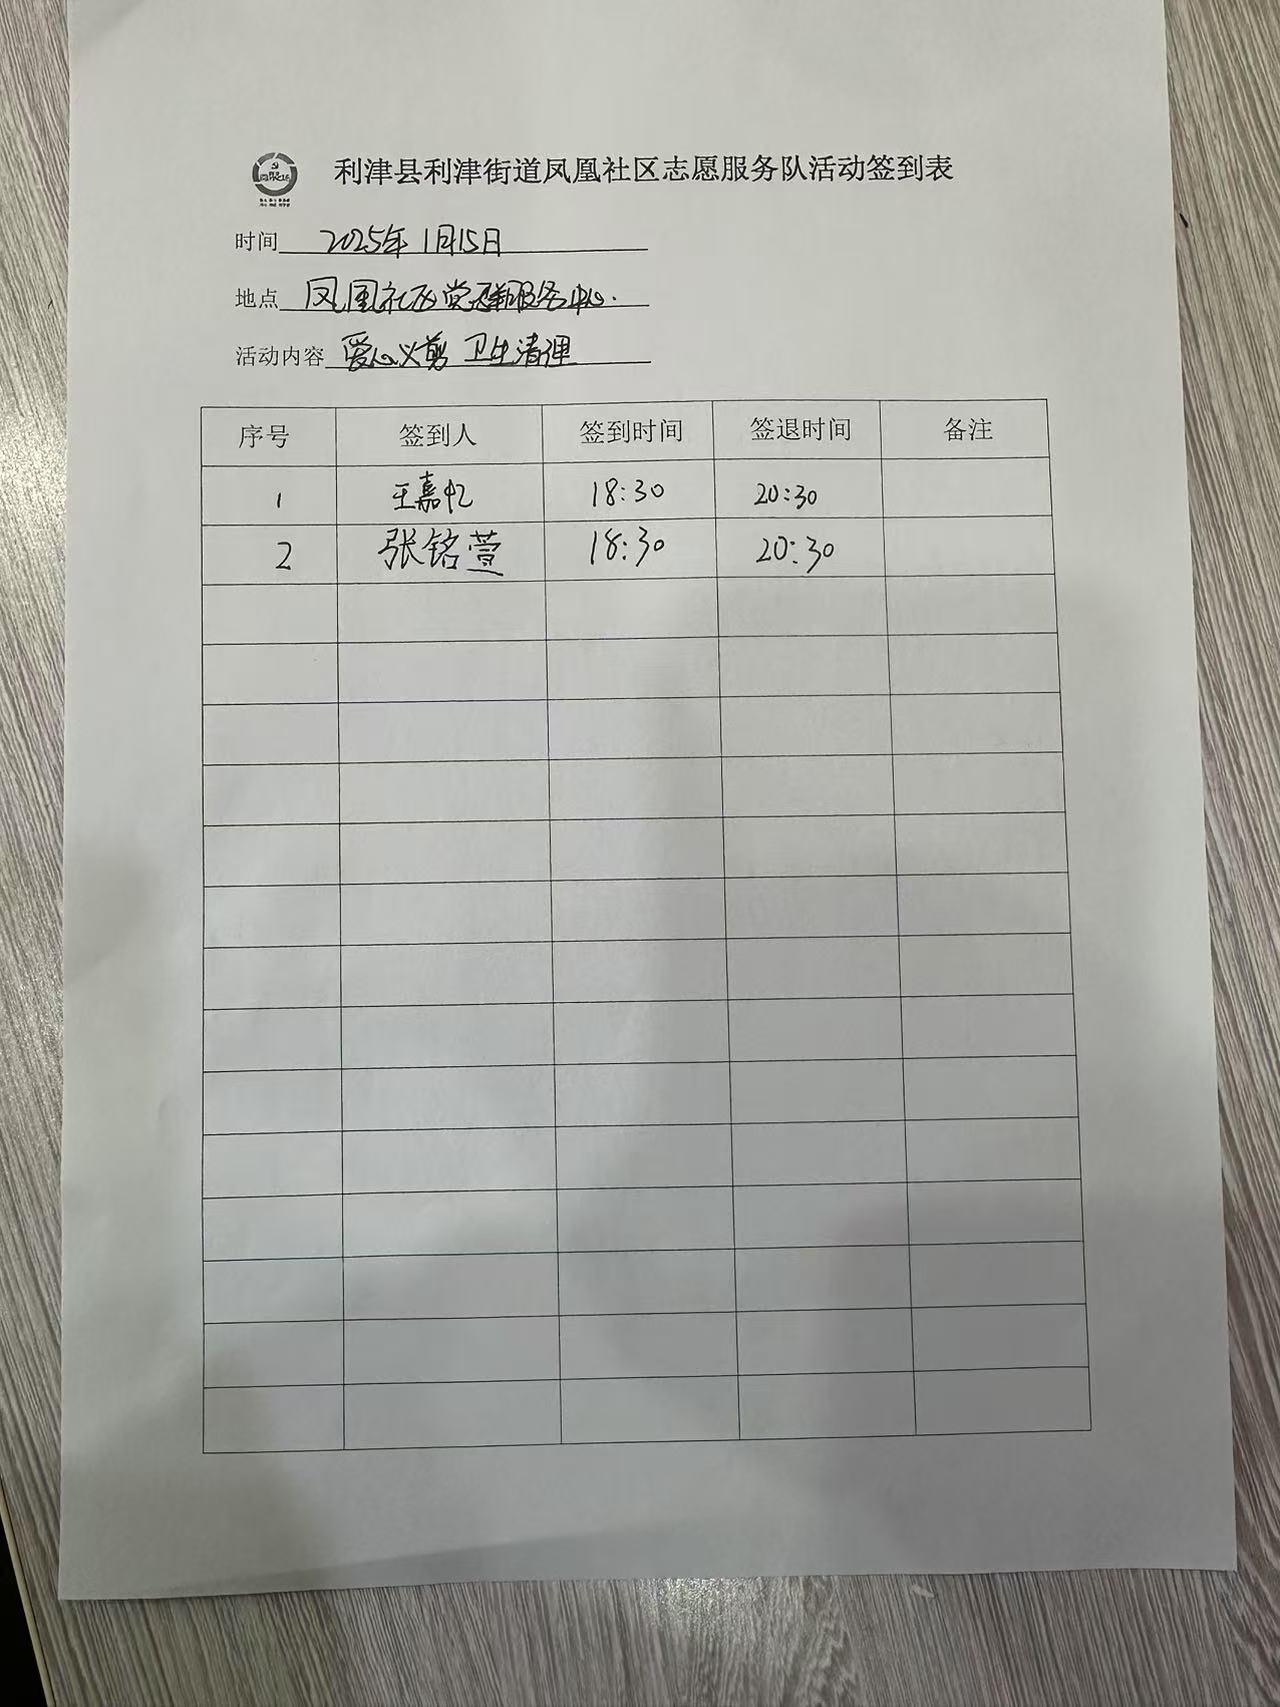 利津县利津街道凤凰社区志愿服务队活动签到表
时间 2025年1月15日
地点 凤凰社区党群服务中心.
活动内容 爱心义剪 卫生清理
序号 签到人 签到时间 签退时间 备注
1 王嘉忆 18:30 20:30
2 张铭萱 18:30 20:30